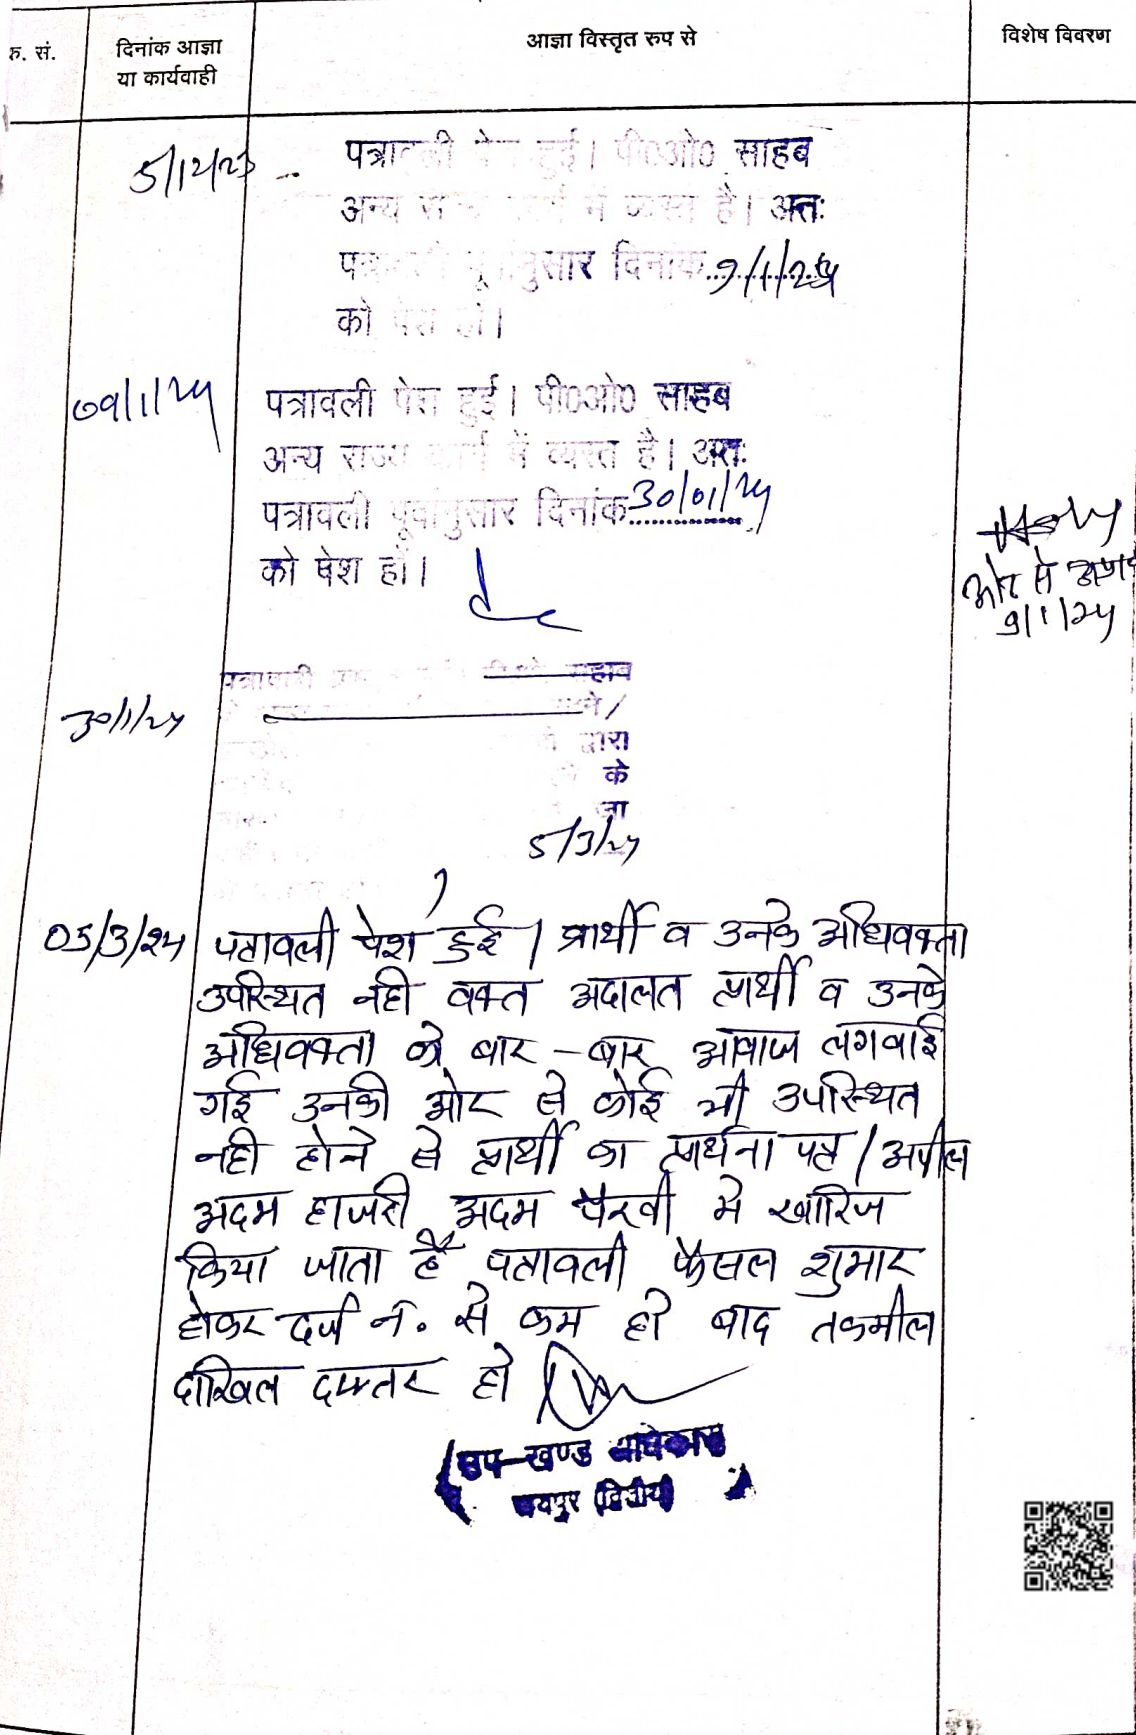 क्र. सं.
दिनांक आज्ञा
या कार्यवाही
आज्ञा विस्तृत रुप से
विशेष विवरण
5/12/23
पत्रावली पेश हुई। पी0ओ0 साहब
अन्य राज्य कार्य में व्यस्त है। अतः
पत्रावली पूर्वानुसार दिनांक 9/1/24
को पेश हो।
09/1/24
पत्रावली पेश हुई। पी0ओ0 साहब
अन्य राज्य कार्य में व्यस्त है। अतः
पत्रावली पूर्वानुसार दिनांक 30/01/24
को पेश हो।
ओर से
9/1/24
30/1/24
पत्रावली साहब
द्वारा
के
जा
5/3/24
05/3/24
पत्रावली पेश हुई। प्रार्थी व उनके अधिवक्ता
उपस्थित नही वक्त अदालत प्रार्थी व उनके
अधिवक्ता को बार-बार आवाज लगवाई
गई उनकी ओर से कोई भी उपस्थित
नही होने से प्रार्थी का प्रार्थना पत्र/अपील
अदम हाजरी अदम पैरवी मे खारिज
किया जाता है पत्रावली फैसल शुमार
होकर दर्ज नं. से कम हो बाद तकमील
दाखिल दफ्तर हो
उप-खण्ड अधिकारी
जयपुर (द्वितीय)